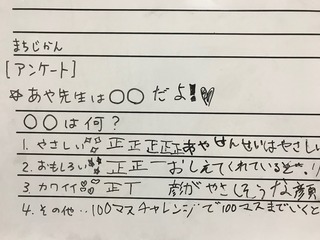 まちじかん
[アンケート]
☆あや先生は○○だよ!♡
○○は何?
1. やさしい 正 正 正 正 正 あや せんせいはやさしい
2. おもしろい 正 正 一 おしえてくれているとき、!
3 カワイイ 正 丅 顔がやさしそうな顔
4. その他…100マスチャレンジで100マスまでいくと